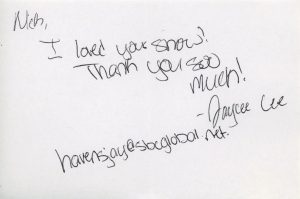 I loved your show!
Thank you soo
much!
-Jaycee Lee
havensjay@sbcglobal.net.